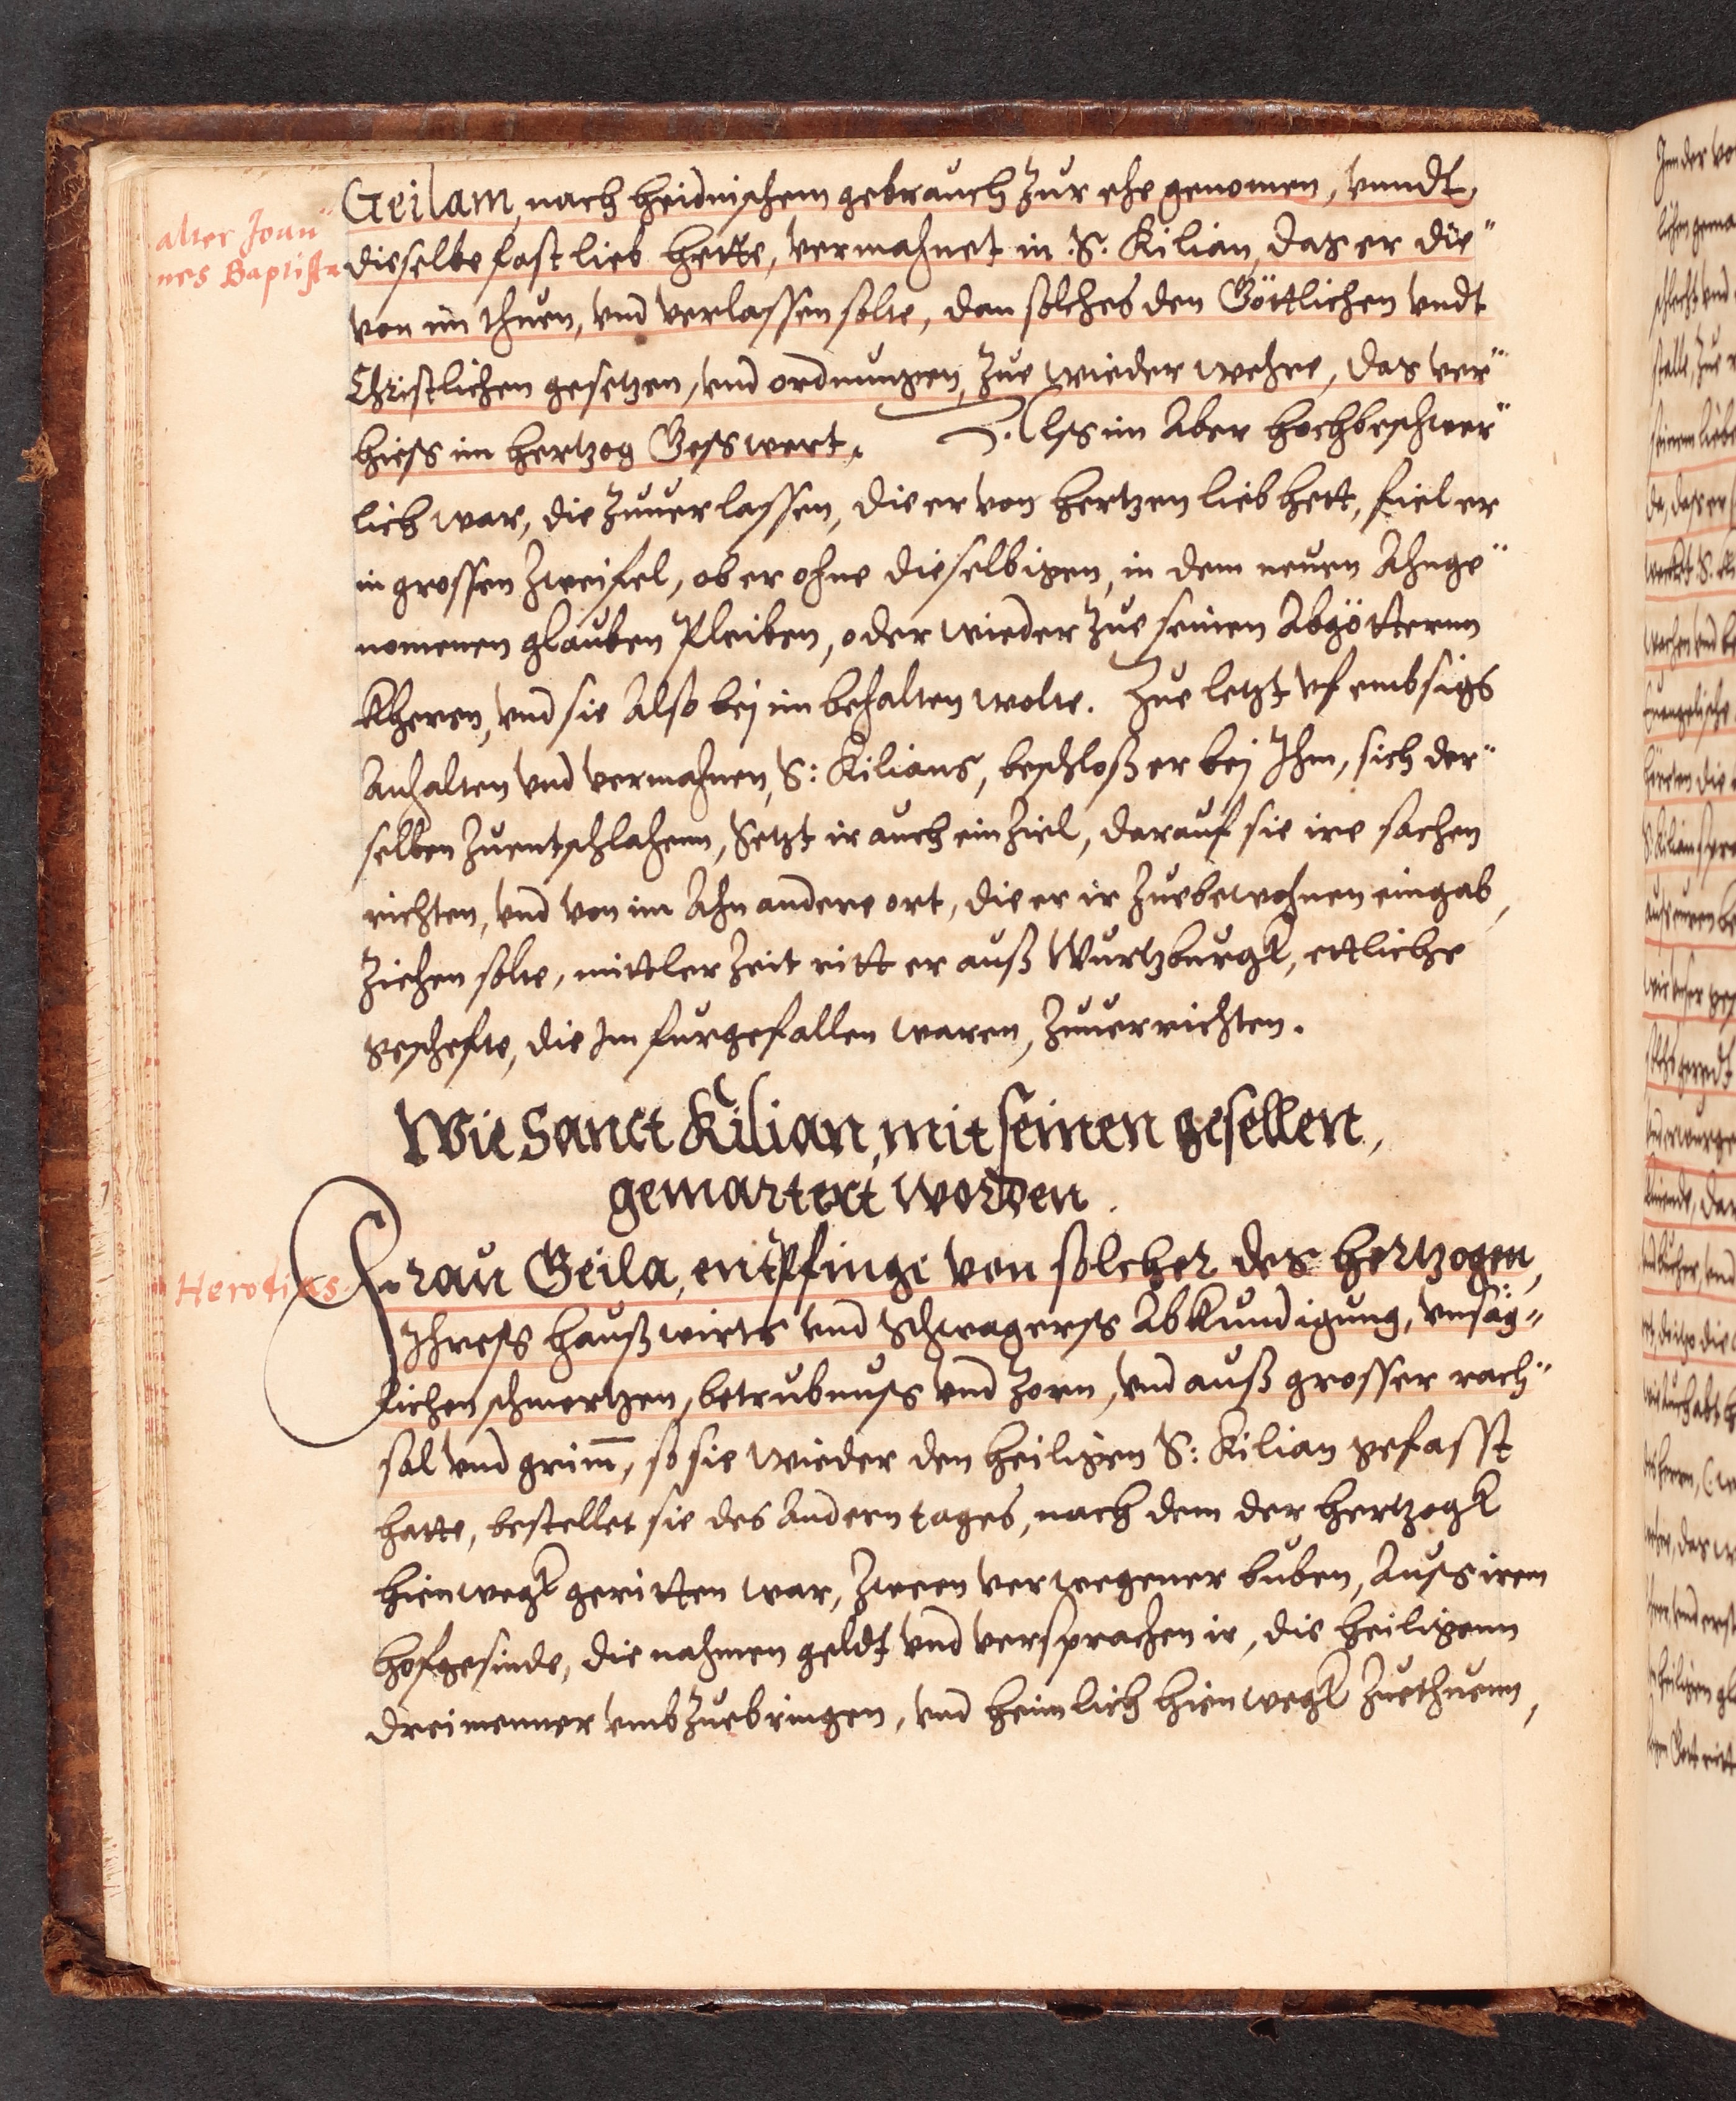 alter Joan"
nes Baptista
Geilam, nach heidnischem gebrauch zur ehe genomen, vnndt,
dieselbe fast lieb hette, vermahnet in S. Kilian, das er die"
von im thuen, vnd verlassen solte, dan solches den Göttlichen vndt
Christlichen gesetzen, vnd ordnungen, zue wieder wehre, das ver"
hiess im hertzog Gosswert. Alss im Aber hochbeschwer"
lich war, die zuuerlassen, die er von hertzen lieb hett, fiel er
in grossen zweifel, ob er ohne dieselbigen, in dem neuen Ahnge"
nomenen glauben Pleiben, oder wieder zue seinen Abgötternn
kheren, vnd sie Also bej im behalten wolte. Zue letzt vf embsigs
Anhalten vnd vermahnen, S: Kilians, beschloß er bej Ihm, sich der"
selben zuentschlahenn, Setzt ir auch ein ziel, darauf sie ire sachen
richten, vnd von im Ahn andere ort, die er ir zuebewohnen eingab,
ziehen solte, mittler zeit ritt er auß Wurtzburgk, ettliche
geschefte, die Im furgefallen waren, zuuerrichten.
Wie Sanct Kilian, mit seinen gesellen,
gemartert worden.
Herodias.
Frau Geila, entpfinge von solcher des hertzogen,
Ihress haußwirts vnd Schwagerss Abkundigung, vnsäg"
lichen schmertzen, betrubnuss vnd zorn, vnd auß grosser rach"
sal vnd grim̅, so sie wieder den heiligen S: Kilian gefasst
hatte, bestellet sie des Andern tages, nach dem der hertzogk
hienwegk geritten war, zween verwegener buben, Auss irem
hofgesinde, die nahmen geldt vnd versprachen ir, die heiligenn
drei menner vmbzuebringen, vnd heimlich hienwegk zuethuenn,